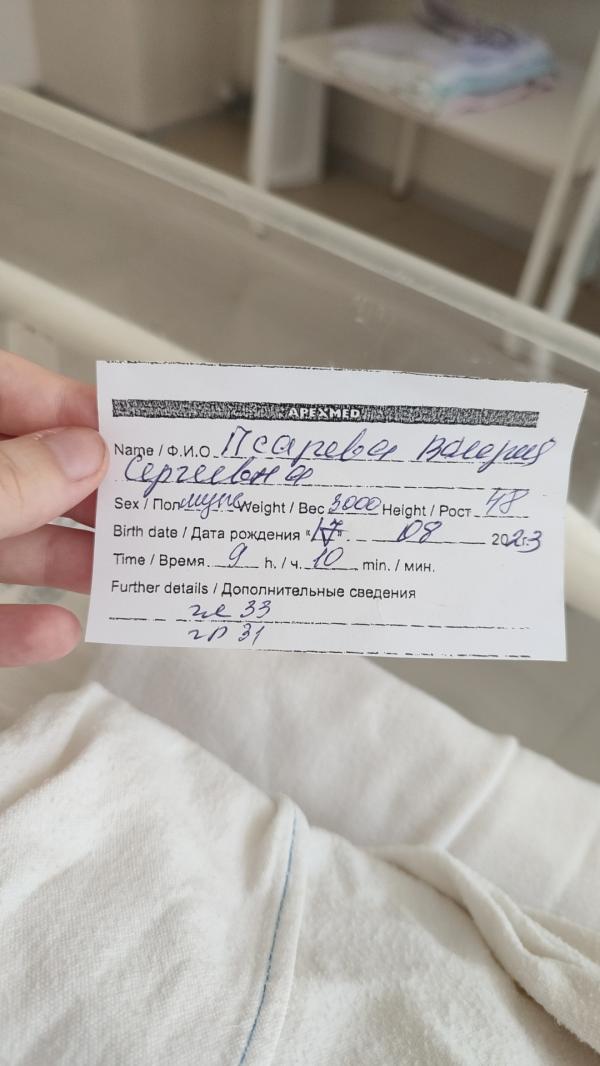 APEXMED
Name / Ф.И.О. Псарева Валерия
Сергеевна
Sex / Пол муж Weight / Вес 3000 Height / Рост 48
Birth date / Дата рождения "17" 08 2023
Time / Время 9 h. / ч. 10 min. / мин.
Further details / Дополнительные сведения
гл 33
гр 31